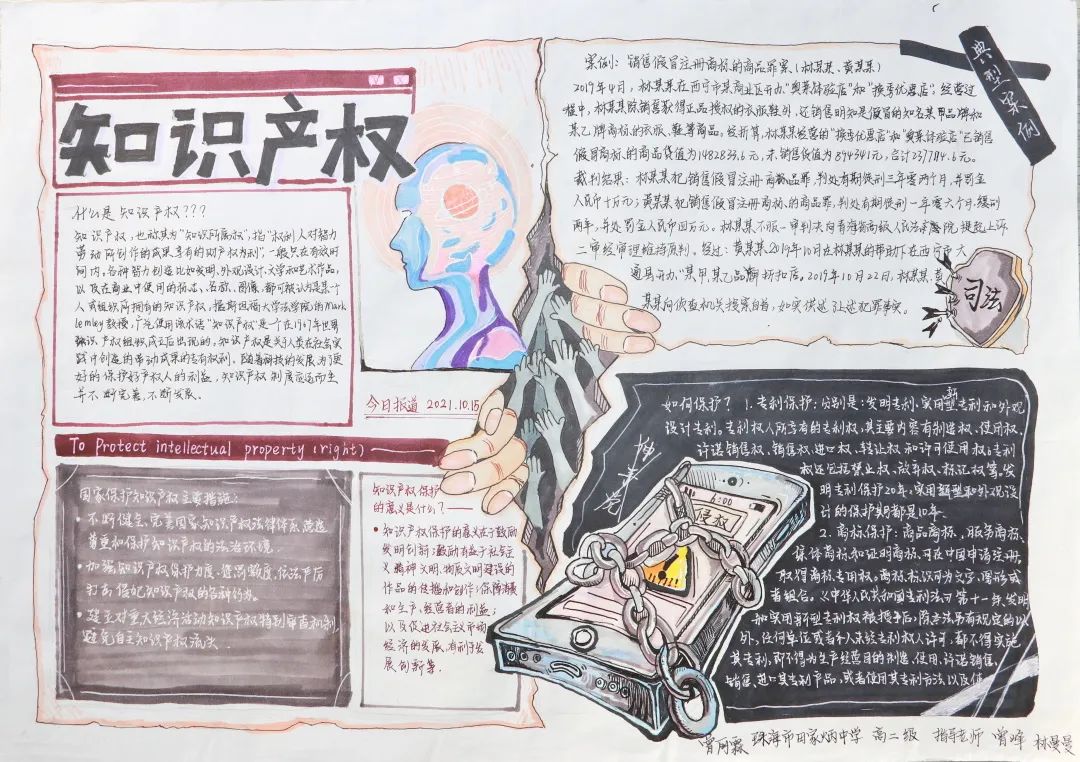 知识产权
什么是知识产权???
知识产权,也称其为“知识所属权”,指“权利人对智力
劳动所创作的成果享有的财产权利”,一般只在有效时
间内。各种智力创造比如发明、外观设计、文学和艺术作品,
以及在商业中使用的标志、名称、图像,都可被认为是某个
人或组织所拥有的知识产权。据斯坦福大学法学院的Mark
Lemley教授,广泛使用该术语“知识产权”是一个在1967年世界
知识产权组织成立后出现的。知识产权是关于人类在社会实
践中创造的劳动成果的专有权利。随着科技的发展,为了更
好的保护好产权人的利益,知识产权制度应运而生
并不断完善,不断发展。
今日报道 2021.10.15
To Protect intellectual property (right)
国家保护知识产权主要措施:
• 不断健全、完善国家知识产权法律体系,营造
尊重和保护知识产权的法治环境.
• 加强知识产权保护力度,提高额度,依法严厉
打击侵犯知识产权的各种行为。
• 建立对重大经济活动知识产权特别审查机制,
避免自主知识产权流失.
知识产权保护
的意义是什么?——
• 知识产权保护的意义在于鼓励
发明创新;鼓励有益于社会主
义精神文明、物质文明建设的
作品的传播和创作;保障消费
和生产、经营者的利益;
以及促进社会主义市场
经济的发展,有利于发
展创新等.
典型案例
案例:销售假冒注册商标的商品罪案(林某某、黄某某)
2017年4月,林某某在西宁市某商业区开办“奥莱体验店”和“换季优惠店”,经营过
程中,林某某除销售获得正品授权的衣服鞋外,还销售明知是假冒的知名某甲品牌和
某乙牌商标的衣服、鞋等商品。经折算,林某某经营的“换季优惠店”和“奥莱体验店”已销售
假冒商标的商品货值为1482833.6元,未销售价值为894341元,合计2377174.6元。
裁判结果:林某某犯销售假冒注册商标商品罪,判处有期徒刑三年零两个月,并罚金
人民币十万元;黄某某犯销售假冒注册商标的商品罪,判处有期徒刑一年零六个月,缓刑
两年,并处罚金人民币四万元。林某某不服一审判决向青海省高级人民法院提起上诉,
二审经审理维持原判。经过:黄某某2019年10月在林某某的帮助下在西宁市大
通县开办“某甲某乙品牌折扣店。2019年10月22日,林某某、黄
某某向侦查机关投案自首,如实供述上述犯罪事实。
司法
如何保护? 1.专利保护:分别是:发明专利、实用新型专利和外观
设计专利。专利权人所享有的专利权,其主要内容有制造权、使用权、
许诺销售权、销售权、进口权、转让权和许可使用权;专利
权还包括禁止权、放弃权、标记权等。发
明专利保护20年,实用新型和外观设
计的保护期都是10年.
2.商标保护:商品商标,服务商标,
集体商标,和证明商标,可在中国申请注册,
取得商标专用权。商标标识可为文字、图形或
者组合。《中华人民共和国专利法》第十一条、发明
和实用新型专利权被授予后,除本法另有规定的以
外,任何单位或者个人未经专利权人许可,都不得实施
其专利,即不得为生产经营目的制造、使用、许诺销售、
销售、进口其专利产品,或者使用其专利方法以及使
6:00
侵权
珠海市田家炳中学 高二级 指导老师 曾峰 林曼曼